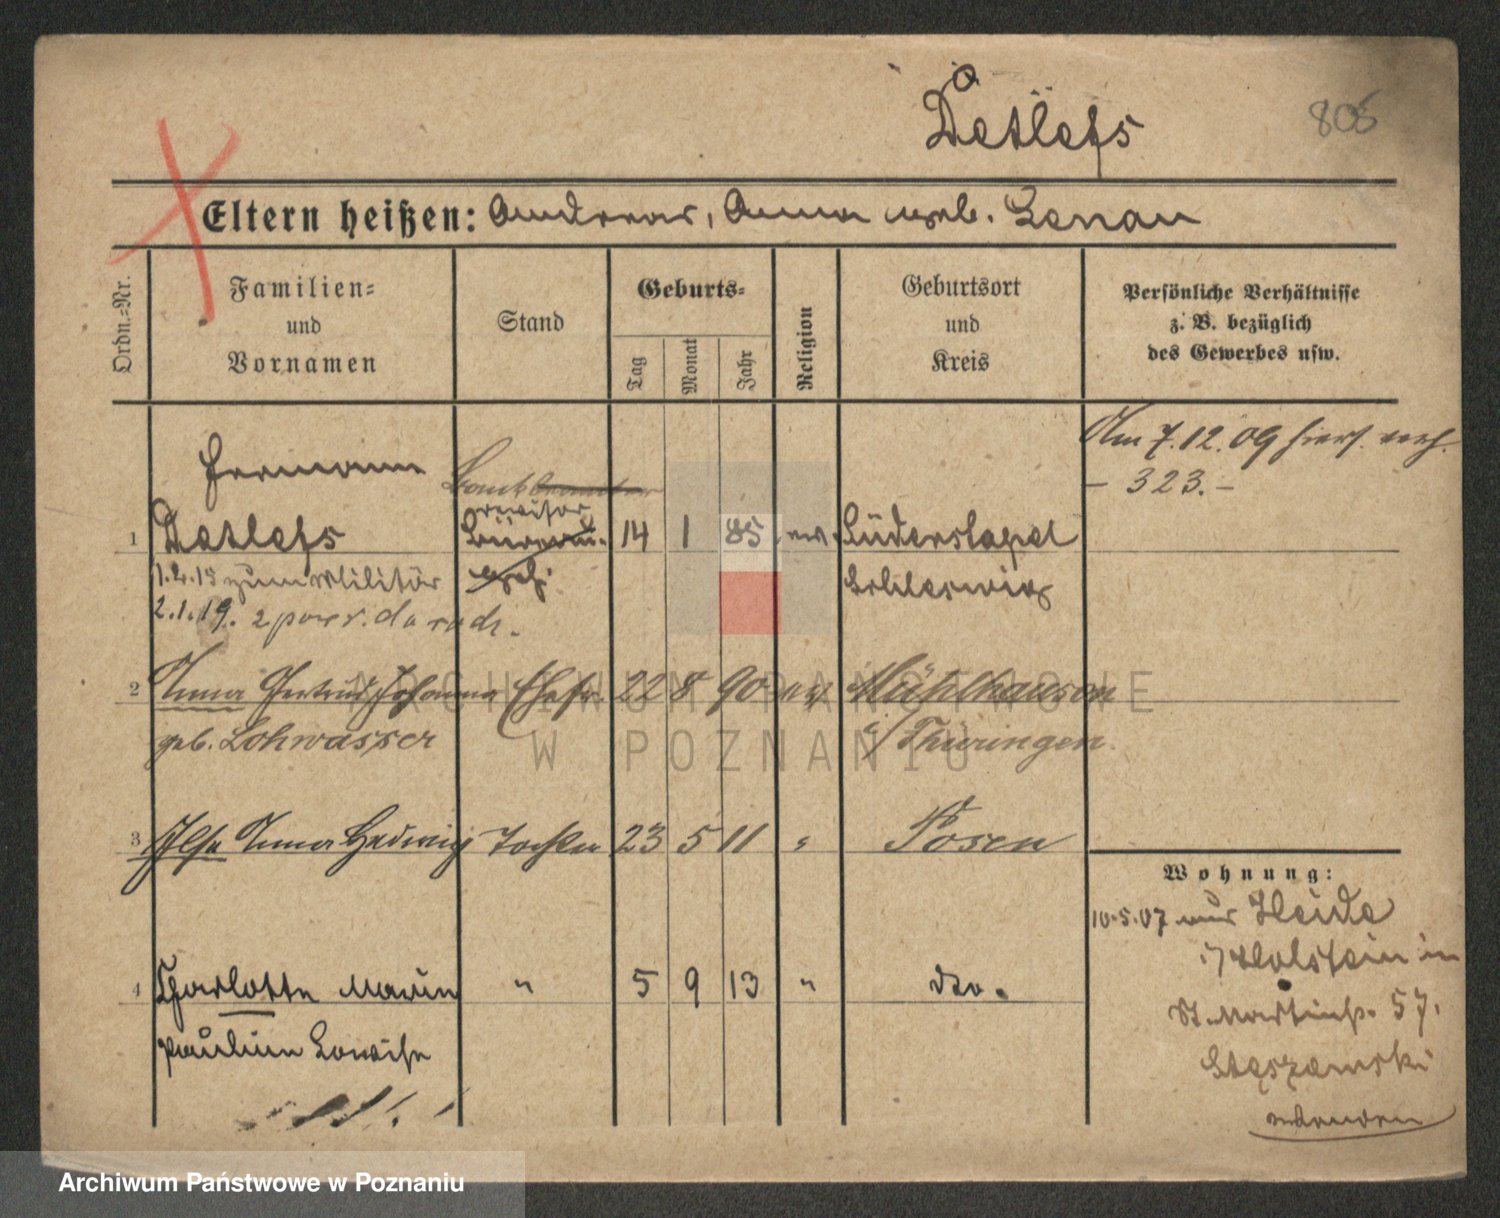 Detlefs
805
Eltern heißen: Andreas, Anna geb. Lenau
Ordn.=Nr.
Familien=
und
Vornamen
Stand
Geburts=
Tag
Monat
Jahr
Religion
Geburtsort
und
Kreis
Persönliche Verhältnisse
z. B. bezüglich
des Gewerbes usw.
Am 7.12.09 hiers. verh.
– 323. –
Hermann
revisor
1 Detlefs Büroau- 14 1 85 ev. Lüderstapel
1.2.15 zum Militär geh. Schleswig
2.1.19.
2 Anna Gertrud Johanna Ehefr. 22 8 90 ev. Mühlhausen
geb. Lohwasser i/Thüringen.
3 Ilse Anna Hedwig Tochter 23 5 11 " Posen
4 Charlotte Marie " 5 9 13 " dto.
Pauline Lowise
Wohnung:
10.5.07 aus Heide
i/Holstein in
St. Martinstr. 57.
Stęszewski
ARCHIWUM PAŃSTWOWE
W POZNANIU
Archiwum Państwowe w Poznaniu